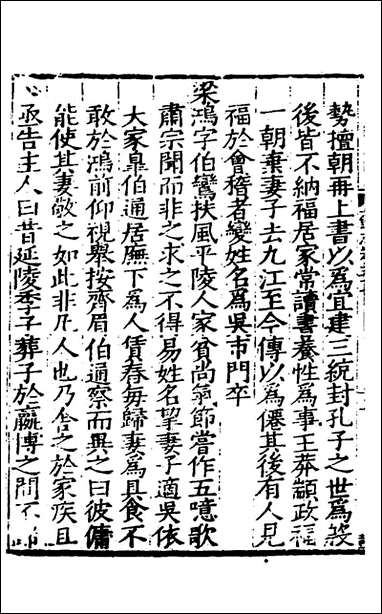 勢擅朝再上書以爲宜建三統封孔子之世爲殷
後皆不納福居家常讀書養性爲事王莽顓政福
一朝棄妻子去九江至今傳以爲僊其後有人見
福於會稽者變姓名爲吳市門卒
梁鴻字伯鸞扶風平陵人家貧尚氣節嘗作五噫歌
肅宗聞而非之求之不得易姓名挈妻子適吳依
大家臯伯通居廡下爲人賃舂毎歸妻爲具食不
敢於鴻前仰視舉按齊眉伯通察而異之曰彼傭
能使其妻敬之如此非凡人也乃舍之於家疾且
亟告主人曰昔延陵季子葬子於嬴博之間不